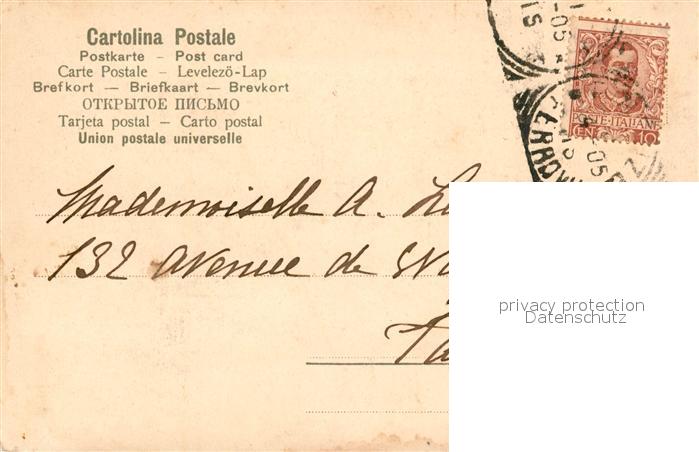 Cartolina Postale
Postkarte – Post card
Carte Postale – Levelező-Lap
Brefkort — Briefkaart — Brevkort
ОТКРЫТОЕ ПИСЬМО
Tarjeta postal – Carto postal
Union postale universelle
POSTE·ITALIANE
CEN. 10
Mademoiselle A.
132 Avenue de
privacy protection
Datenschutz